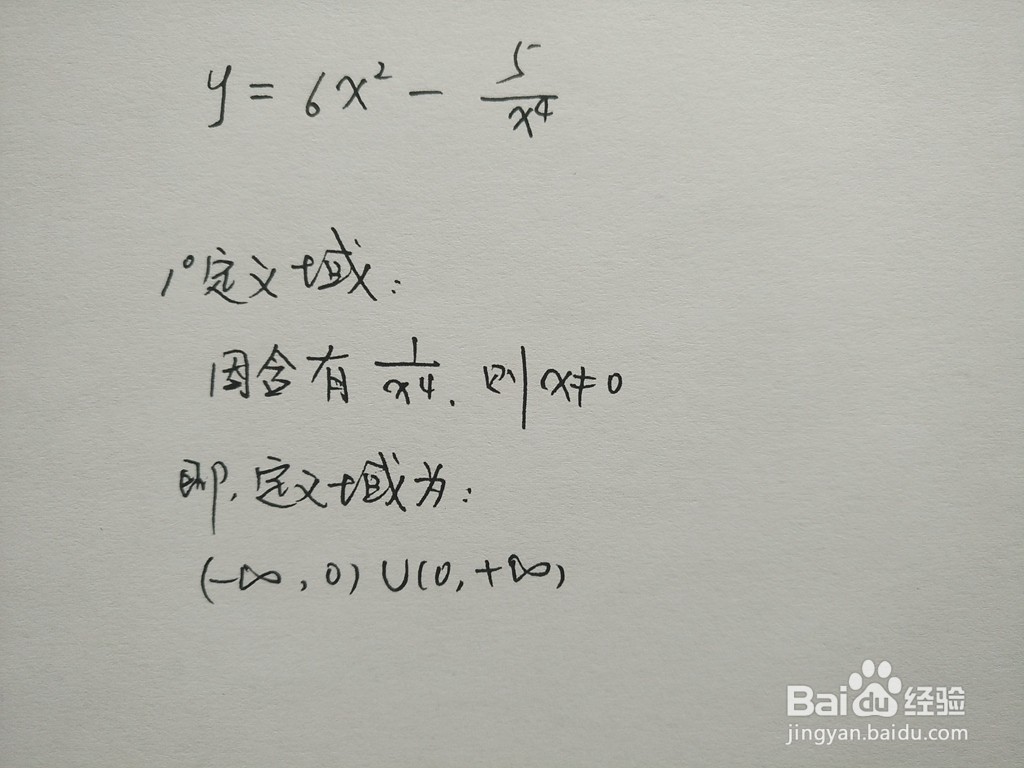 y = 6x² - 5/x⁴
1°定义域:
因含有 1/x⁴. 则 x≠0
即, 定义域为:
(-∞, 0) ∪(0, +∞)
Baidu经验
jingyan.baidu.com